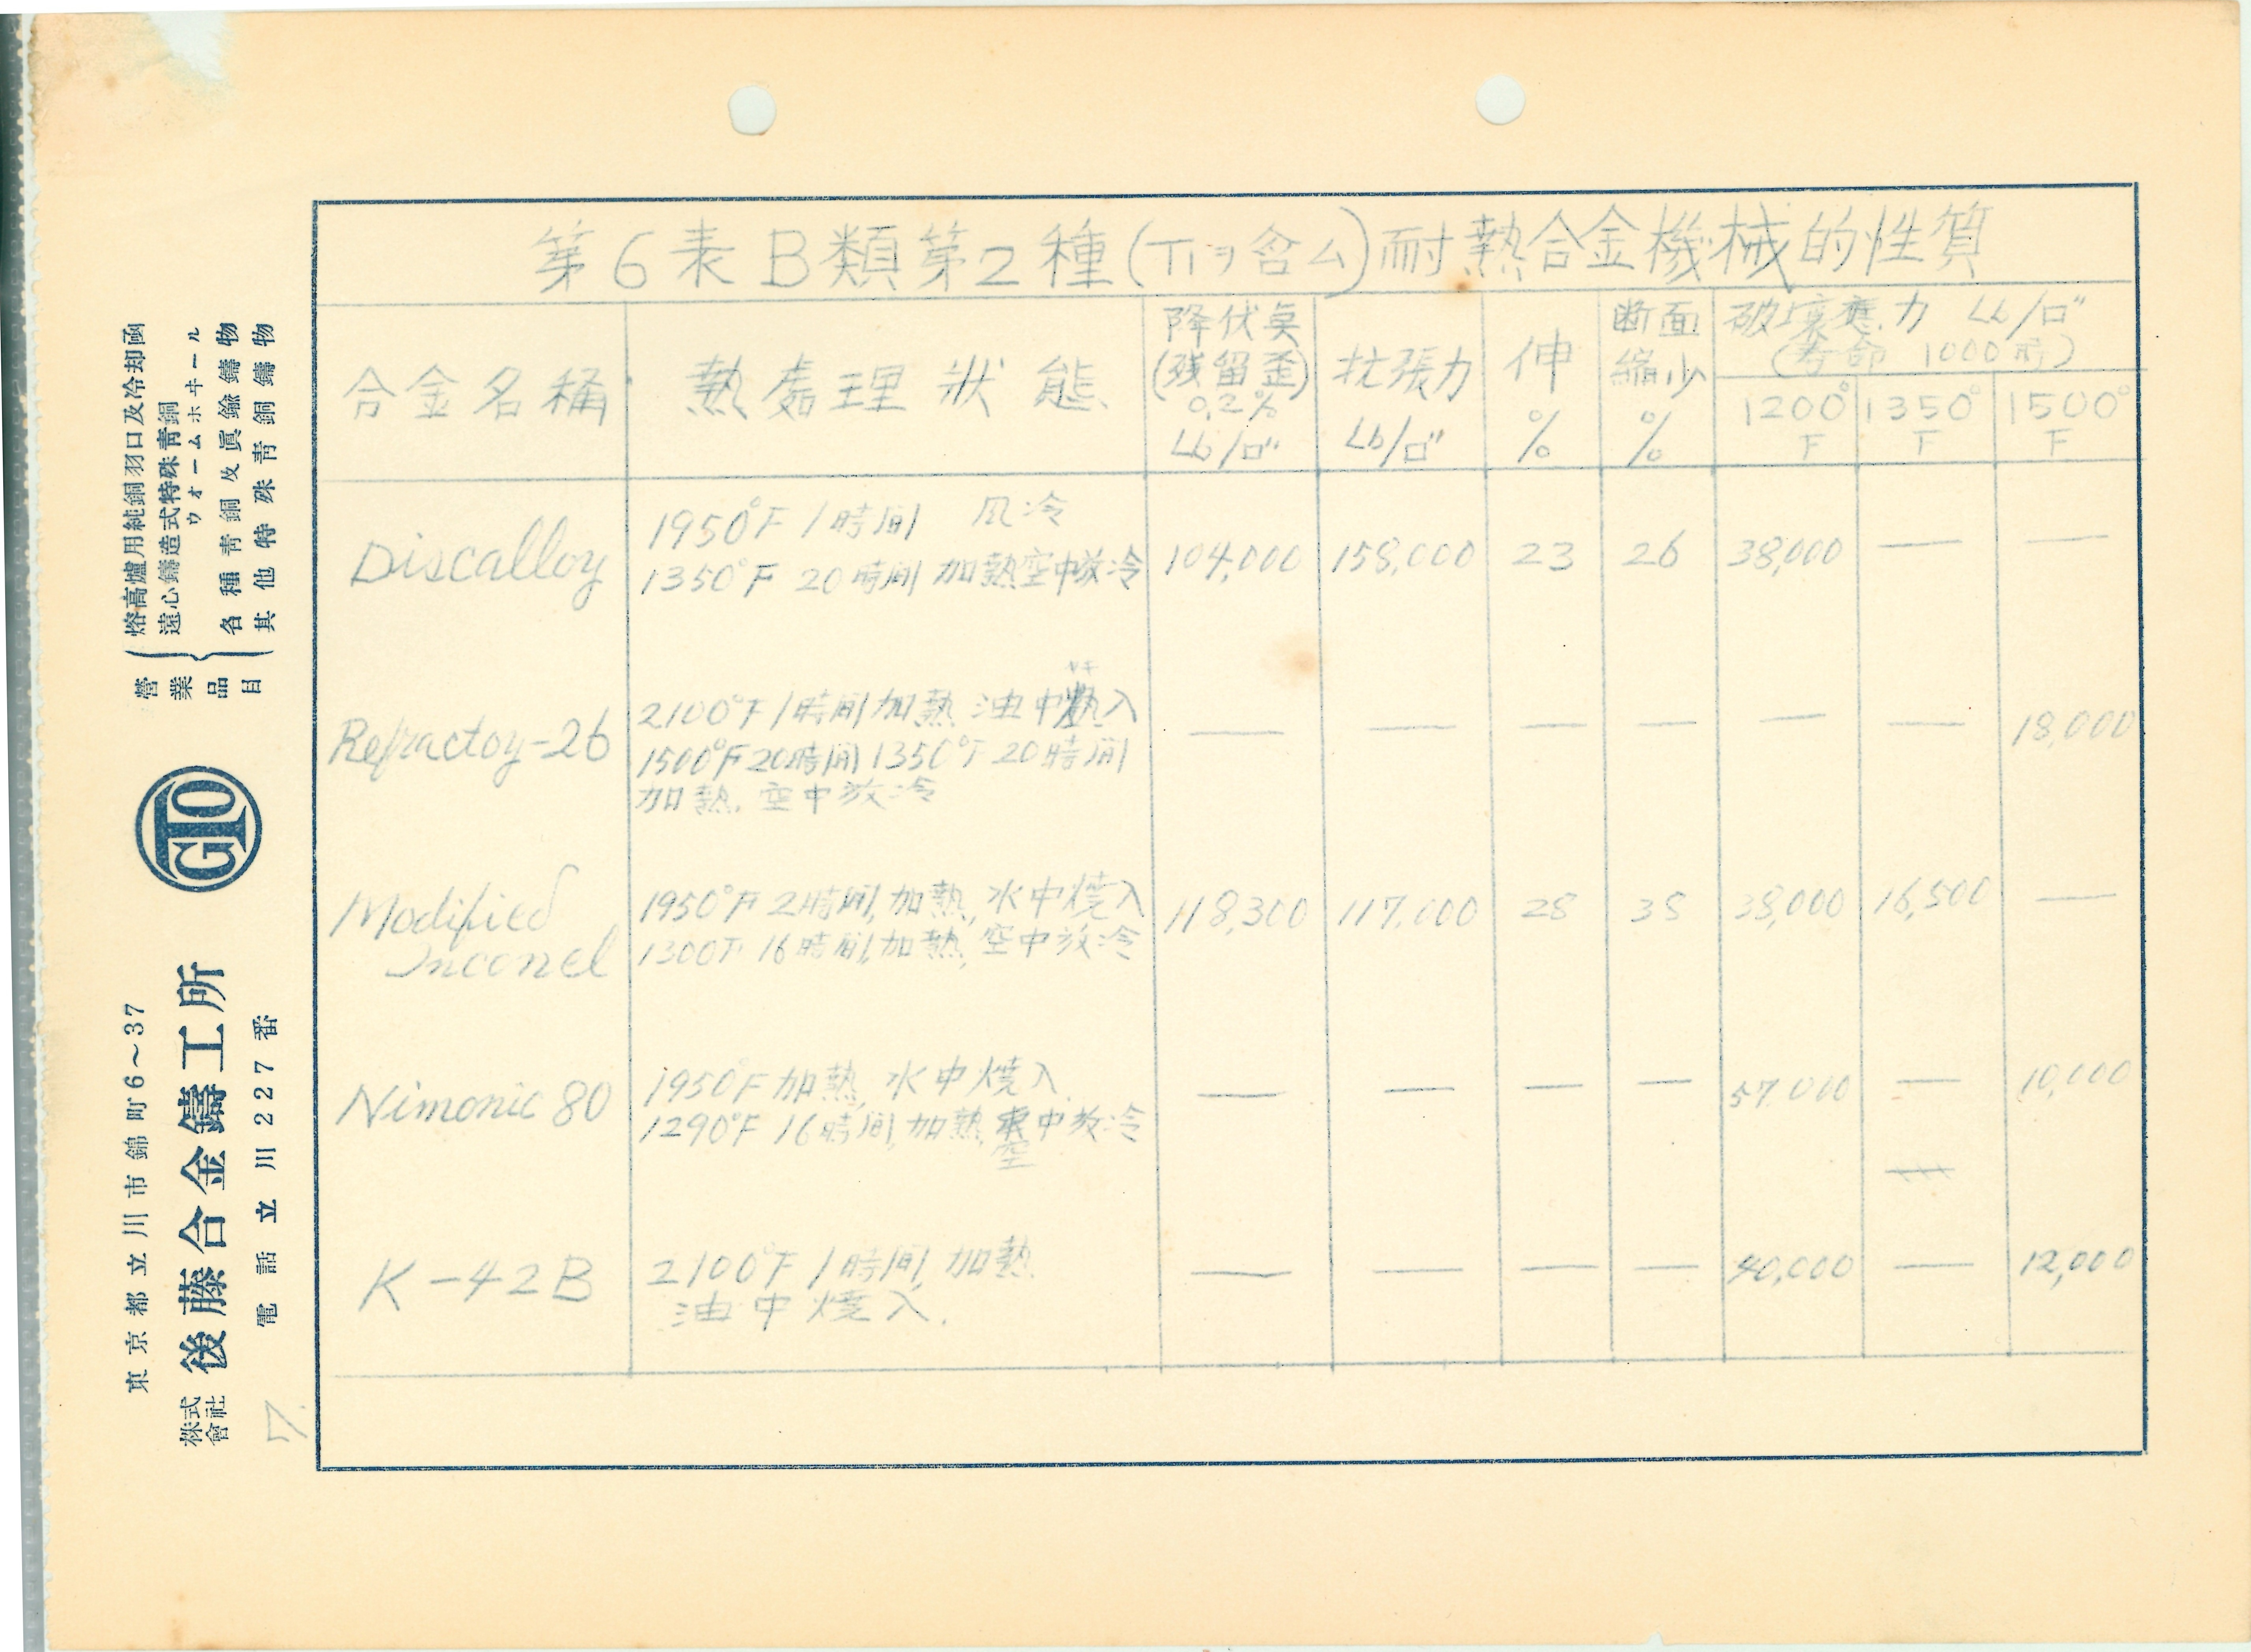 第6表 B類第2種(Tiヲ含ム)耐熱合金機械的性質
合金名稱 熱處理狀態 降伏点(残留歪)0.2% Lb/□" 抗張力 Lb/□" 伸 % 断面縮少 % 破壊應力 Lb/□" (寿命 1000時)
1200°F 1350°F 1500°F
Discalloy 1950°F 1時間 風冷 104,000 158,000 23 26 38,000 — —
1350°F 20時間 加熱空中放冷
Refractoy-26 2100°F 1時間加熱 油中焼入 — — — — — — 18,000
1500°F 20時間 1350°F 20時間
加熱, 空中放冷
Modified Inconel 1950°F 2時間,加熱,水中焼入 118,300 117,000 28 38,000 16,500 —
1300F 16時間,加熱,空中放冷
Nimonic 80 1950°F 加熱, 水中焼入 — — — — 57,000 — 10,000
1290°F 16時間,加熱,空中放冷
K-42B 2100°F 1時間 加熱 — — — — 40,000 — 12,000
油中焼入.
營業品目
熔高爐用純銅羽口及冷却函
遠心鑄造式特殊青銅
ウォームホヰール
各種青銅及眞鍮鑄物
其他特殊青銅鑄物
GTO
東京都立川市錦町6~37
株式會社 後藤合金鑄工所
電話立川227番
7.